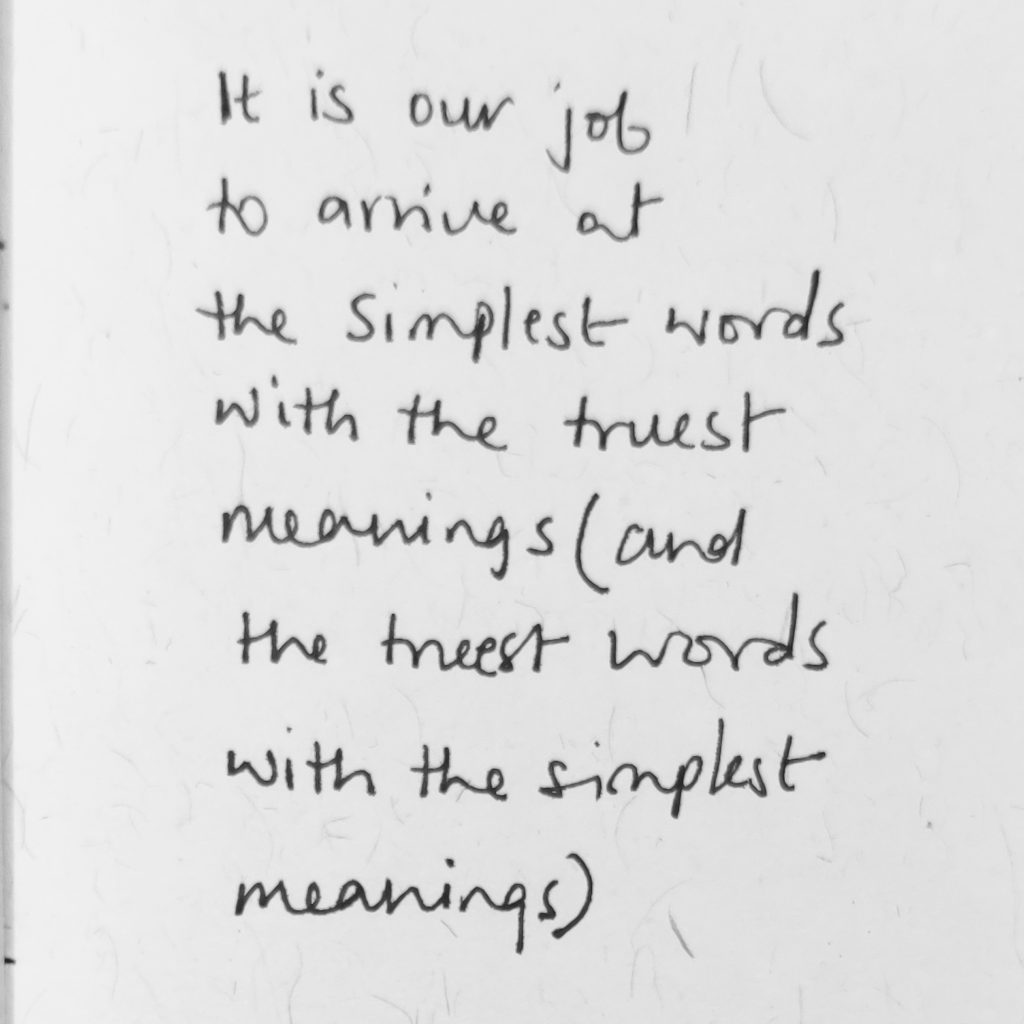 It is our job
to arrive at
the simplest words
with the truest
meanings (and
the truest words
with the simplest
meanings)